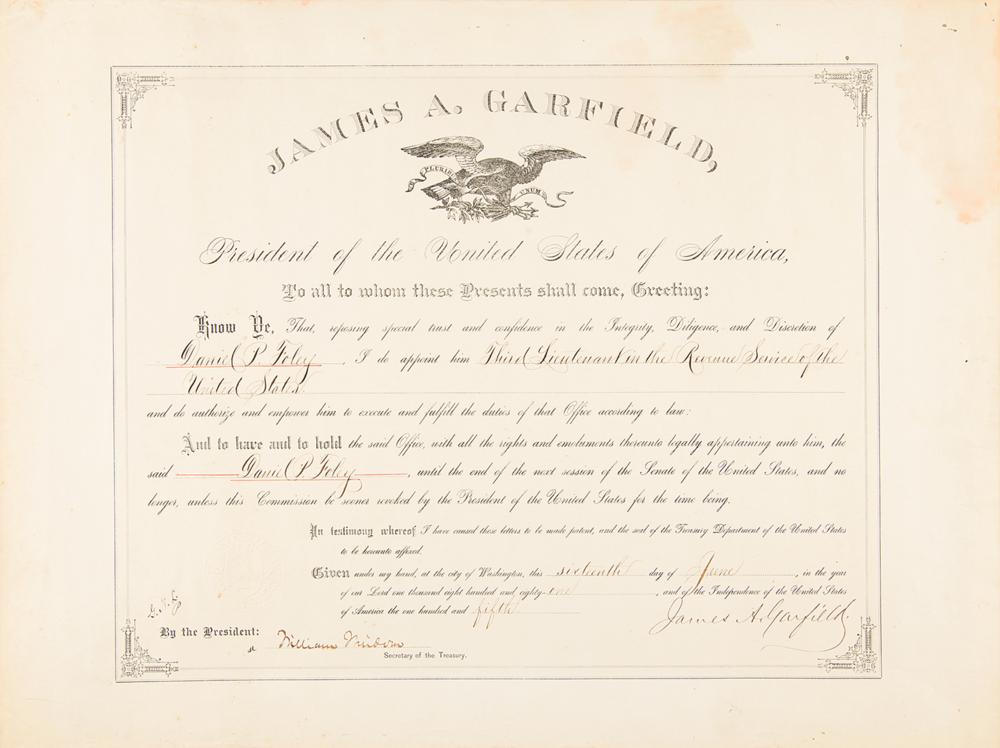 JAMES A. GARFIELD,
E PLURIBUS UNUM
President of the United States of America,
To all to whom these Presents shall come, Greeting:
Know Ye, That, reposing special trust and confidence in the Integrity, Diligence, and Discretion of
Daniel P. Foley, I do appoint him Third Lieutenant in the Revenue Service of the
United States
and do authorize and empower him to execute and fulfill the duties of that Office according to law:
And to have and to hold the said Office, with all the rights and emoluments thereunto legally appertaining unto him, the
said Daniel P. Foley, until the end of the next session of the Senate of the United States, and no
longer, unless this Commission be sooner revoked by the President of the United States for the time being.
In testimony whereof I have caused these letters to be made patent, and the seal of the Treasury Department of the United States
to be hereunto affixed.
Given under my hand, at the city of Washington, this sixteenth day of June, in the year
of our Lord one thousand eight hundred and eighty-one, and of the Independence of the United States
of America the one hundred and fifth
James A. Garfield.
By the President:
William Windom
Secretary of the Treasury.